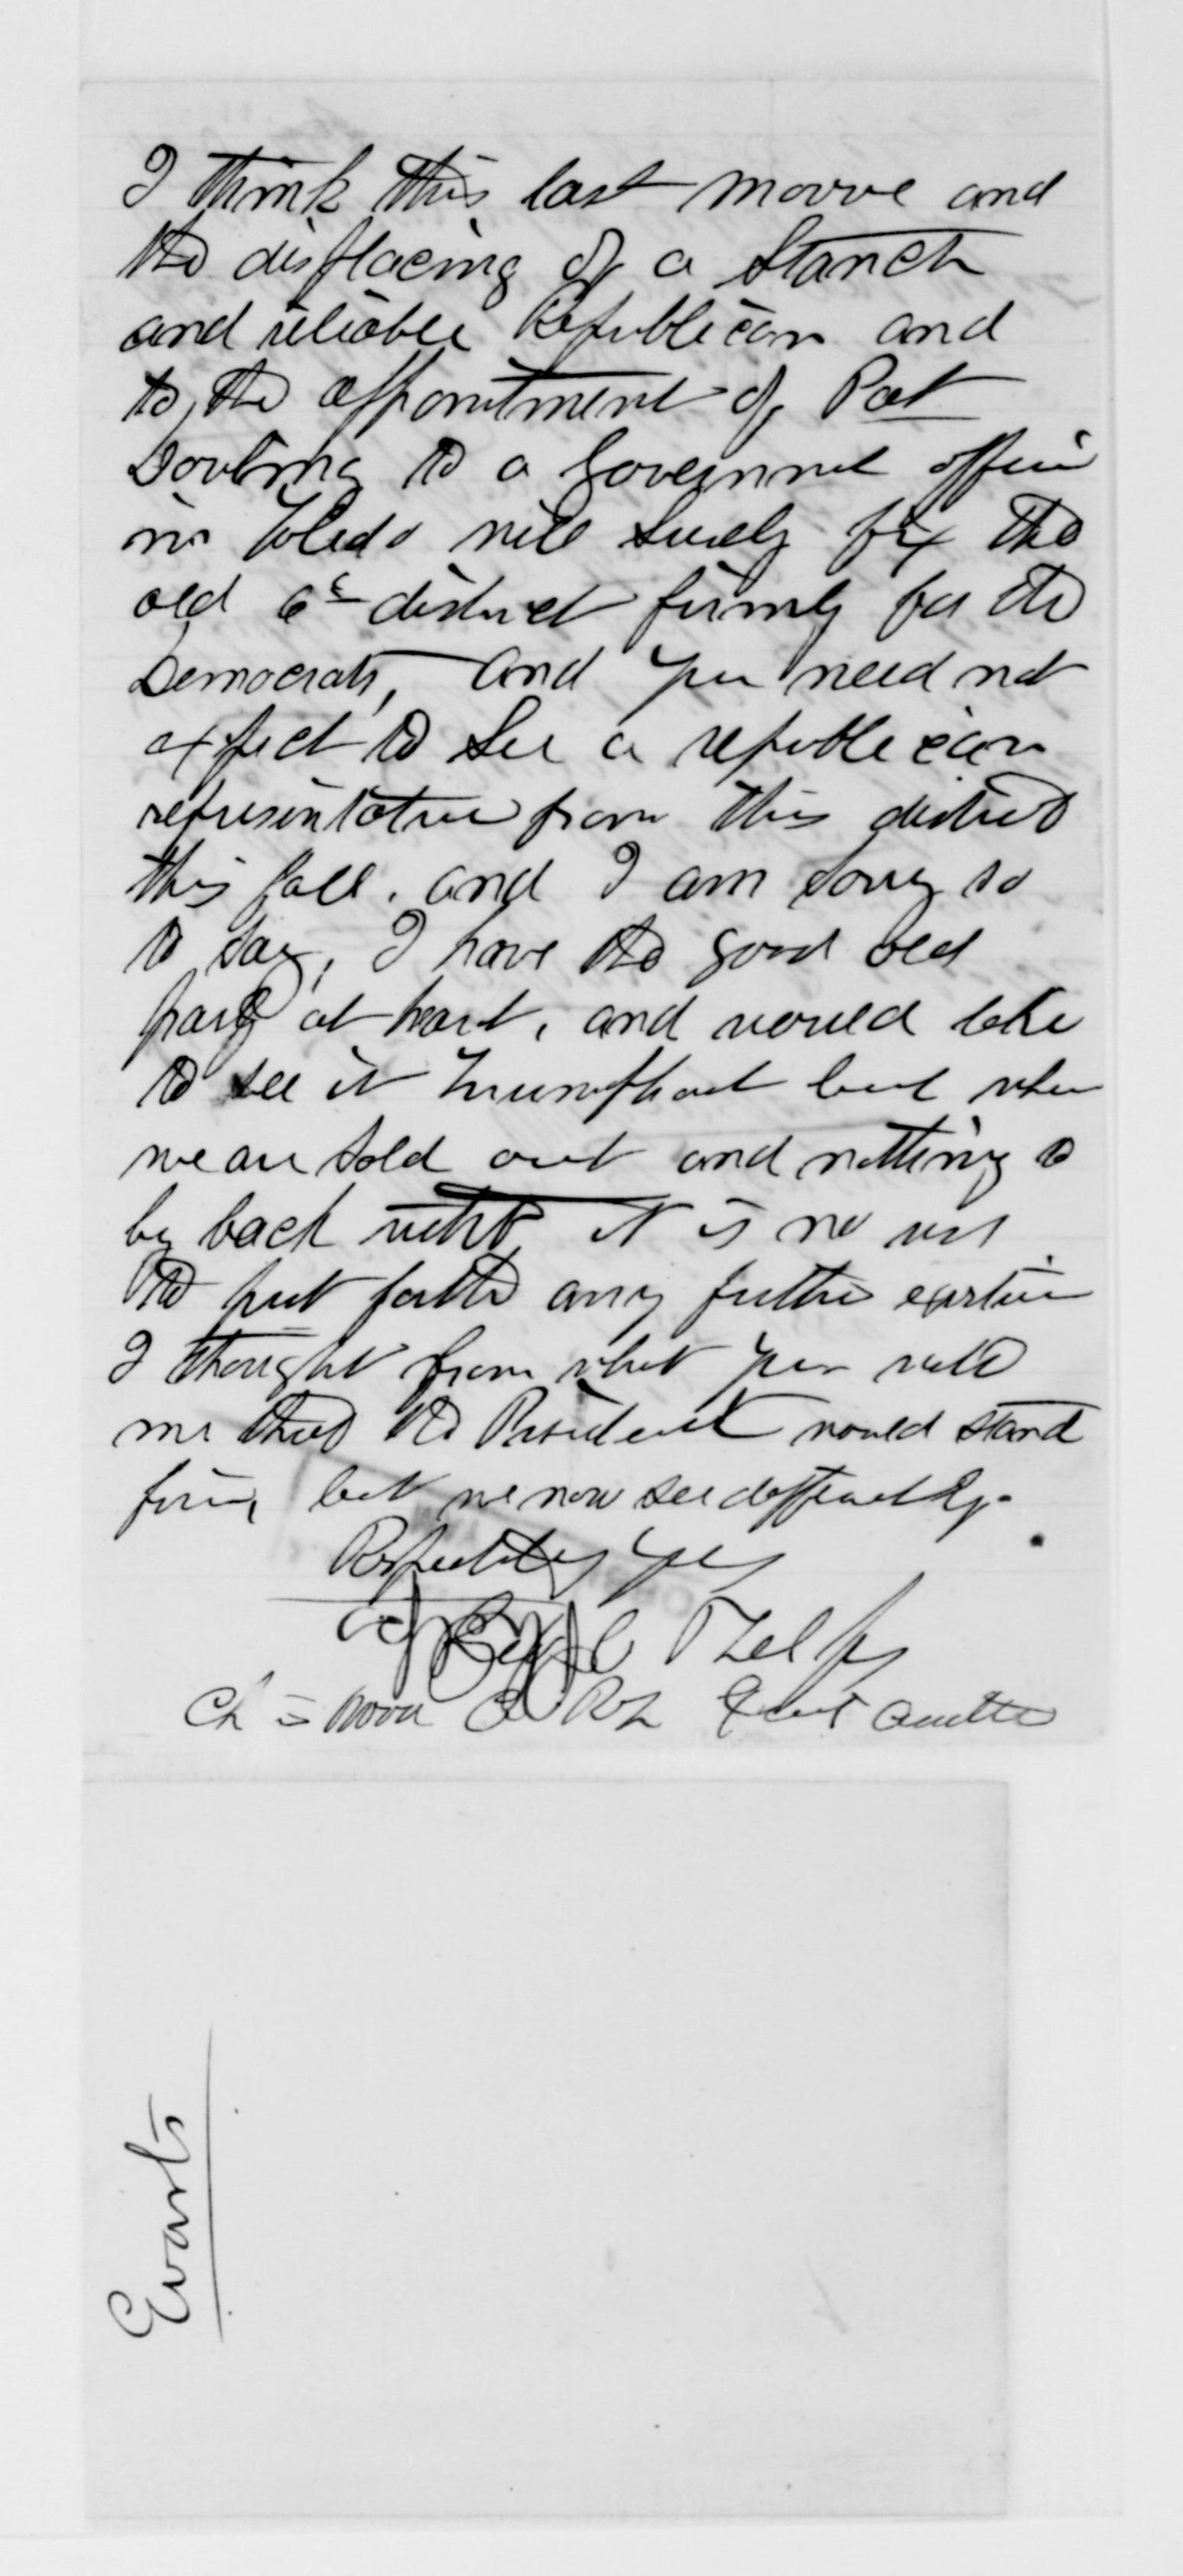 I think this last moove and
the displacing of a Stanch
and reliable Republican and
to the appointment of Pat
Dowling to a Government office
in Toledo will surely fix the
old 6th district firmly for the
Democrats, and you need not
expect to see a republican
representative from this district
this fall. and I am sorry so
to say, I have the good old
party at heart, and would like
to see it triumphant but when
we are sold out and nothing to
by back with it is no use
to put forth any further exertion
I thought from what you
me that the President would stand
firm, but we now see differently.
Respectfully Yours
Phelps
Ch
Evarts